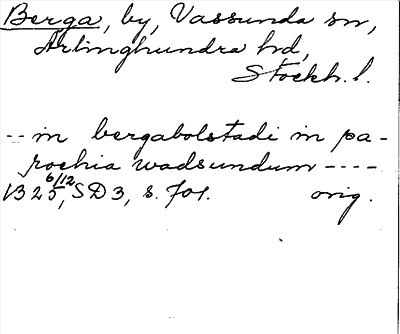 Berga, by, Vassunda sn,
Ärlinghundra hd,
Stockh. l.
-- in bergabolstadi in pa-
rochia wadsundum ----
1325 6/12, SD 3, s. 701. orig.